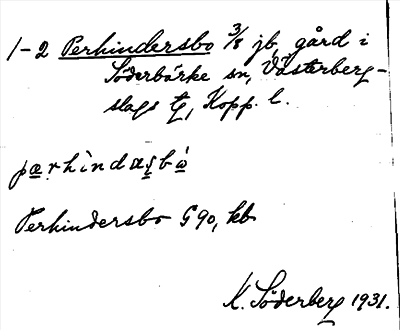 1-2 Perhindersbo 3/8 jb, gård i
Söderbärke sn, Västerberg-
slags tg, Kopp. l.
pærhìndæʂbó
Perhindersbo G 90, kb
K. Söderberg 1931.